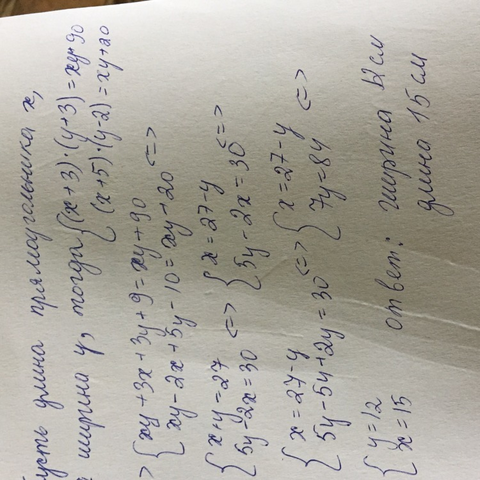 Пусть длина прямоугольника x,
ширина y, тогда { (x+3)·(y+3)=xy+90
(x+5)·(y-2)=xy+20
=> { xy+3x+3y+9=xy+90
xy-2x+5y-10=xy+20 <=>
{ x+y=27
5y-2x=30 <=> { x=27-y
5y-2x=30 <=>
{ x=27-y
5y-5y+2y=30 <=> { x=27-y
7y=84 <=>
{ y=12
x=15
ответ: ширина 12 см
длина 15 см